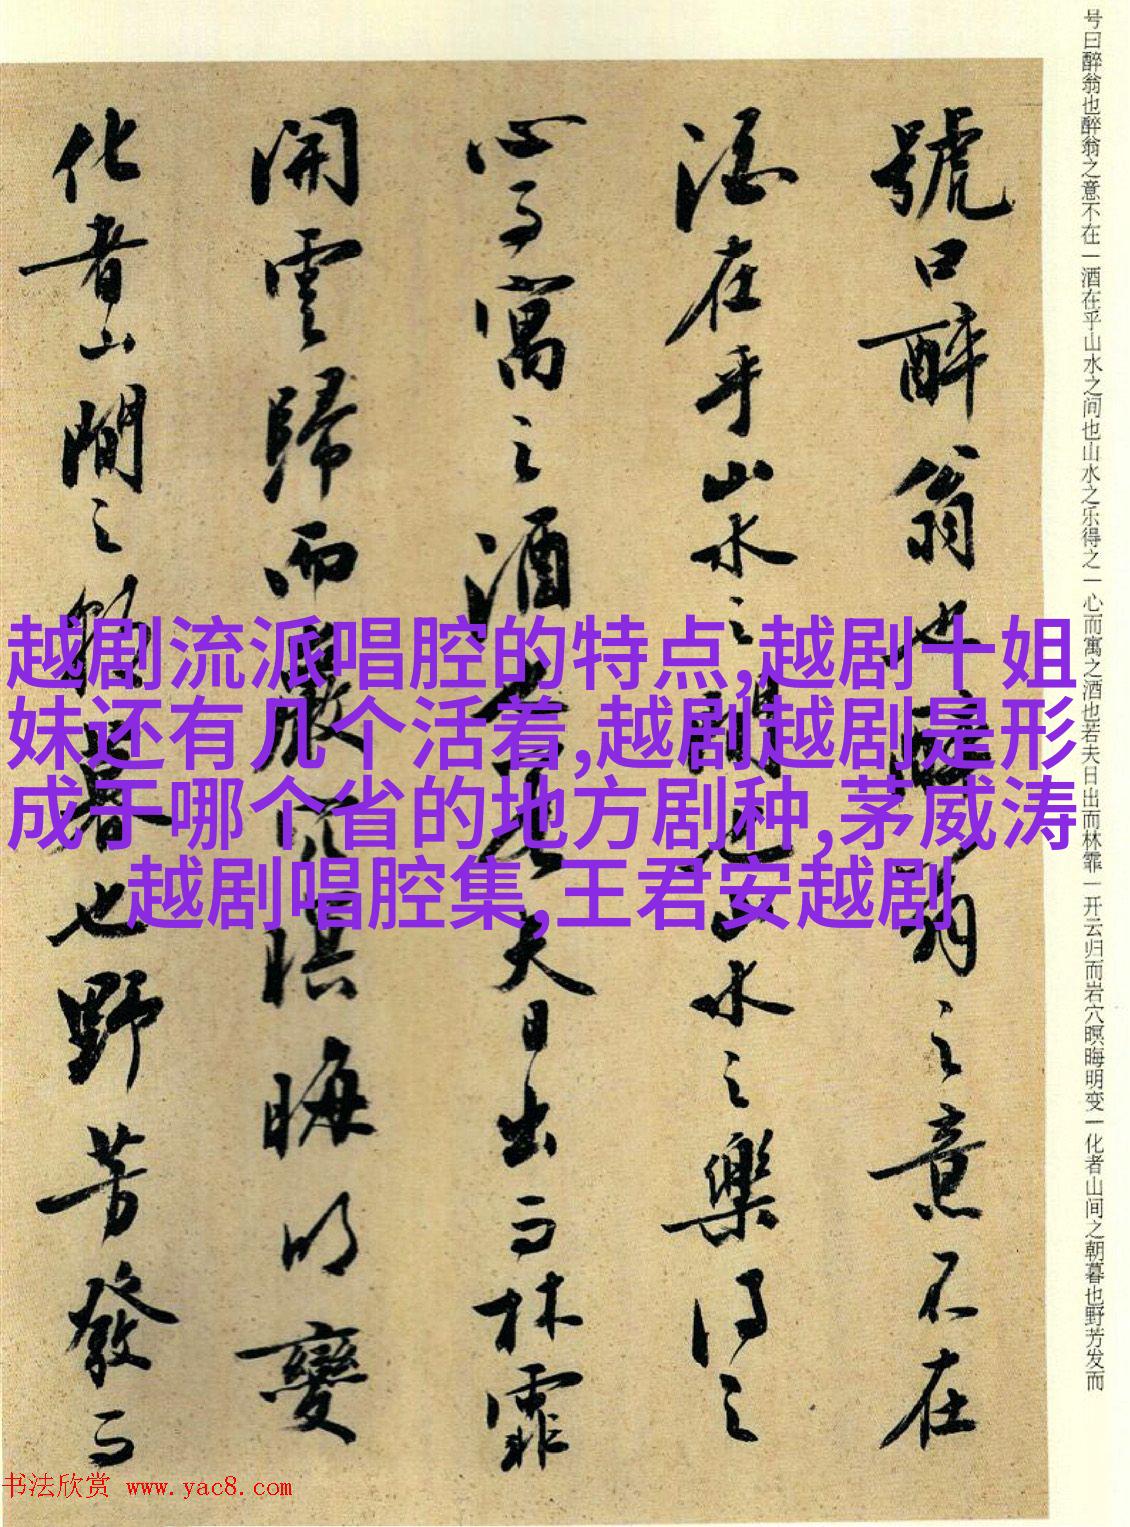 号曰醉翁也醉翁之意不在一酒在乎山水之间也山水之乐得之一心而寓之酒也若夫日出而林霏一开云归而岩穴暝晦明变一化者山间之朝暮也野芳发而
號曰醉翁也醉翁之意不在
酒在乎山水之間也山水之樂得之
心而寓之酒也若夫日出而林霏
開雲歸而巖穴暝晦明變
化者山間之朝暮也野芳發而
越剧流派唱腔的特点,越剧十姐
妹还有几个活着,越剧越剧是形
成于哪个省的地方剧种,茅威涛
越剧唱腔集,王君安越剧
书法欣赏 www.yac8.com